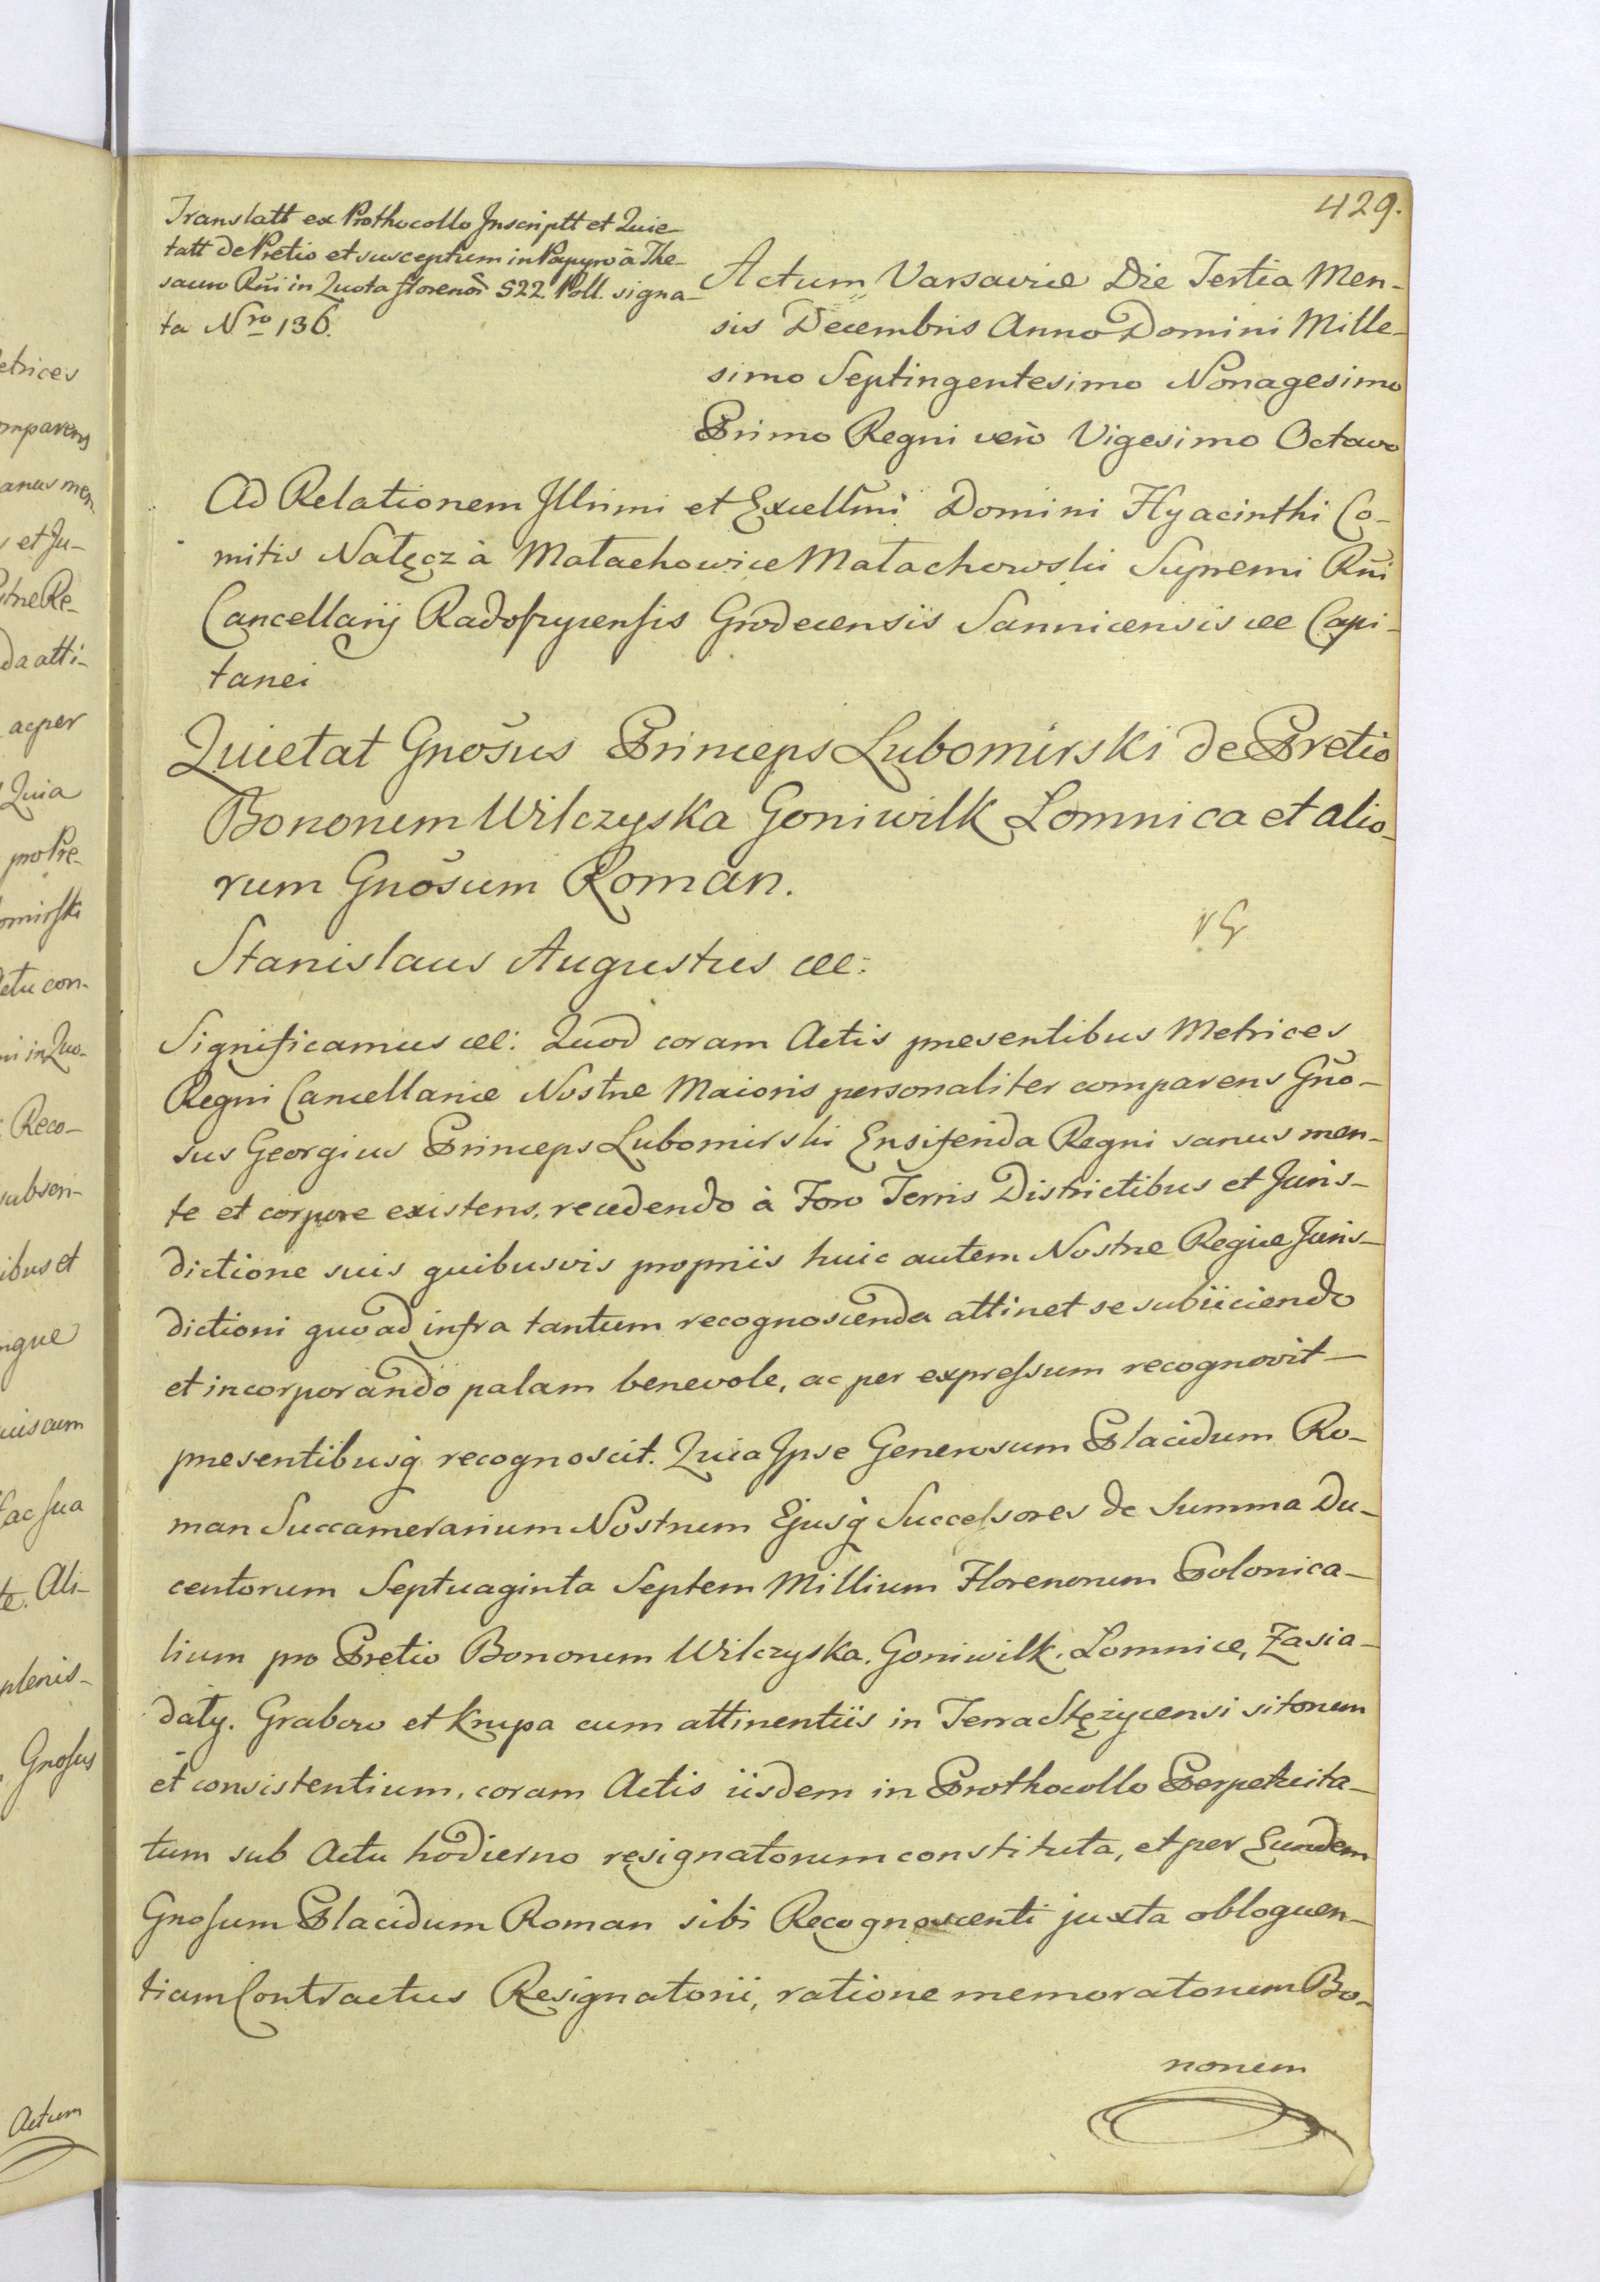 429.
Translatt ex Prothocollo Inscriptt et Quie-
tatt de Pretio et susceptum in Papyro à The-
sauro Rñi in Quota florenoř 522 Poll. signa-
ta Nro 136.
Actum Varsaviæ Die Tertia Men-
sis Decembris Anno Domini Mille-
simo Septingentesimo Nonagesimo
Primo Regni vero Vigesimo Octavo
Ad Relationem Illrimi et Excellmi Domini Hyacinthi Co-
mitis Nałęcz à Małachowice Małachowski Supremi Rñi
Cancellarij Radoszycensis Grodecensis Sannicensis &c Capi-
tanei
Quietat Gnõsus Princeps Lubomirski de Pretio
Bonorum Wilczyska Goniwilk Lomnica et alio-
rum Gnõsum Roman.
Stanislaus Augustus &c:
Significamus &c: Quod coram Actis præsentibus Metrices
Regni Cancellariæ Nostræ Maioris personaliter comparens Gño-
sus Georgius Princeps Lubomirski Ensiferida Regni sanus men-
te et corpore existens, recedendo à Foro Terris Districtibus et Juris-
dictione suis quibusvis propriis huic autem Nostræ Regiæ Juris-
dictioni quoad infra tantum recognoscenda attinet se subiiciendo
et incorporando palam benevole, ac per expressum recognovit-
præsentibusq recognoscit. Quia Ipse Generosum Placidum Ro-
man Succamerarium Nostrum Ejusq Successores de Summa Du-
centorum Septuaginta Septem Millium Florenorum Polonica-
lium pro Pretio Bonorum Wilczyska. Goniwilk. Lomnice, Zasia-
dały. Grabow et Krupa cum attinentiis in Terra Stężycensi sitorum
et consistentium, coram Actis iisdem in Prothocollo Perpetuita-
tum sub Actu hodierno resignatorum constituta, et per Eundem
Gnosum Placidum Roman sibi Recognoscenti juxta obloquen-
tiam Contractus Resignatorii, ratione memoratorum Bo-
norum
etrices
omparens
anus men
et Ju-
stræ Re-
da atti-
ac per
Quia
pro Pre-
omirski
ctu con-
ni in Quo-
Reco-
subscri-
ibus et
nque
uis cum
ac sua
te. Ali-
plenis-
Gnosus
Actum